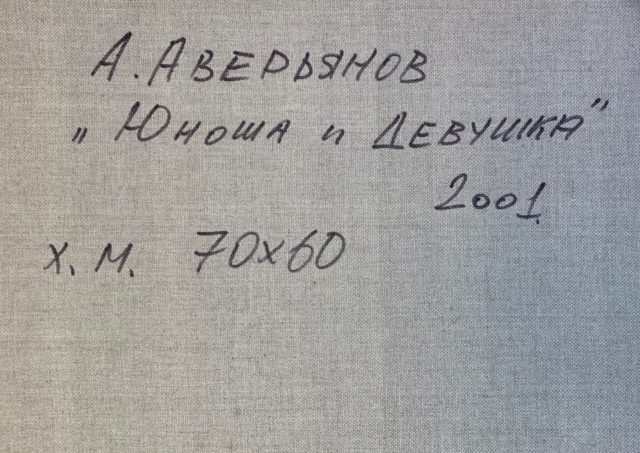 А. Аверьянов
„Юноша и Девушка"
2001.
х. м. 70х60